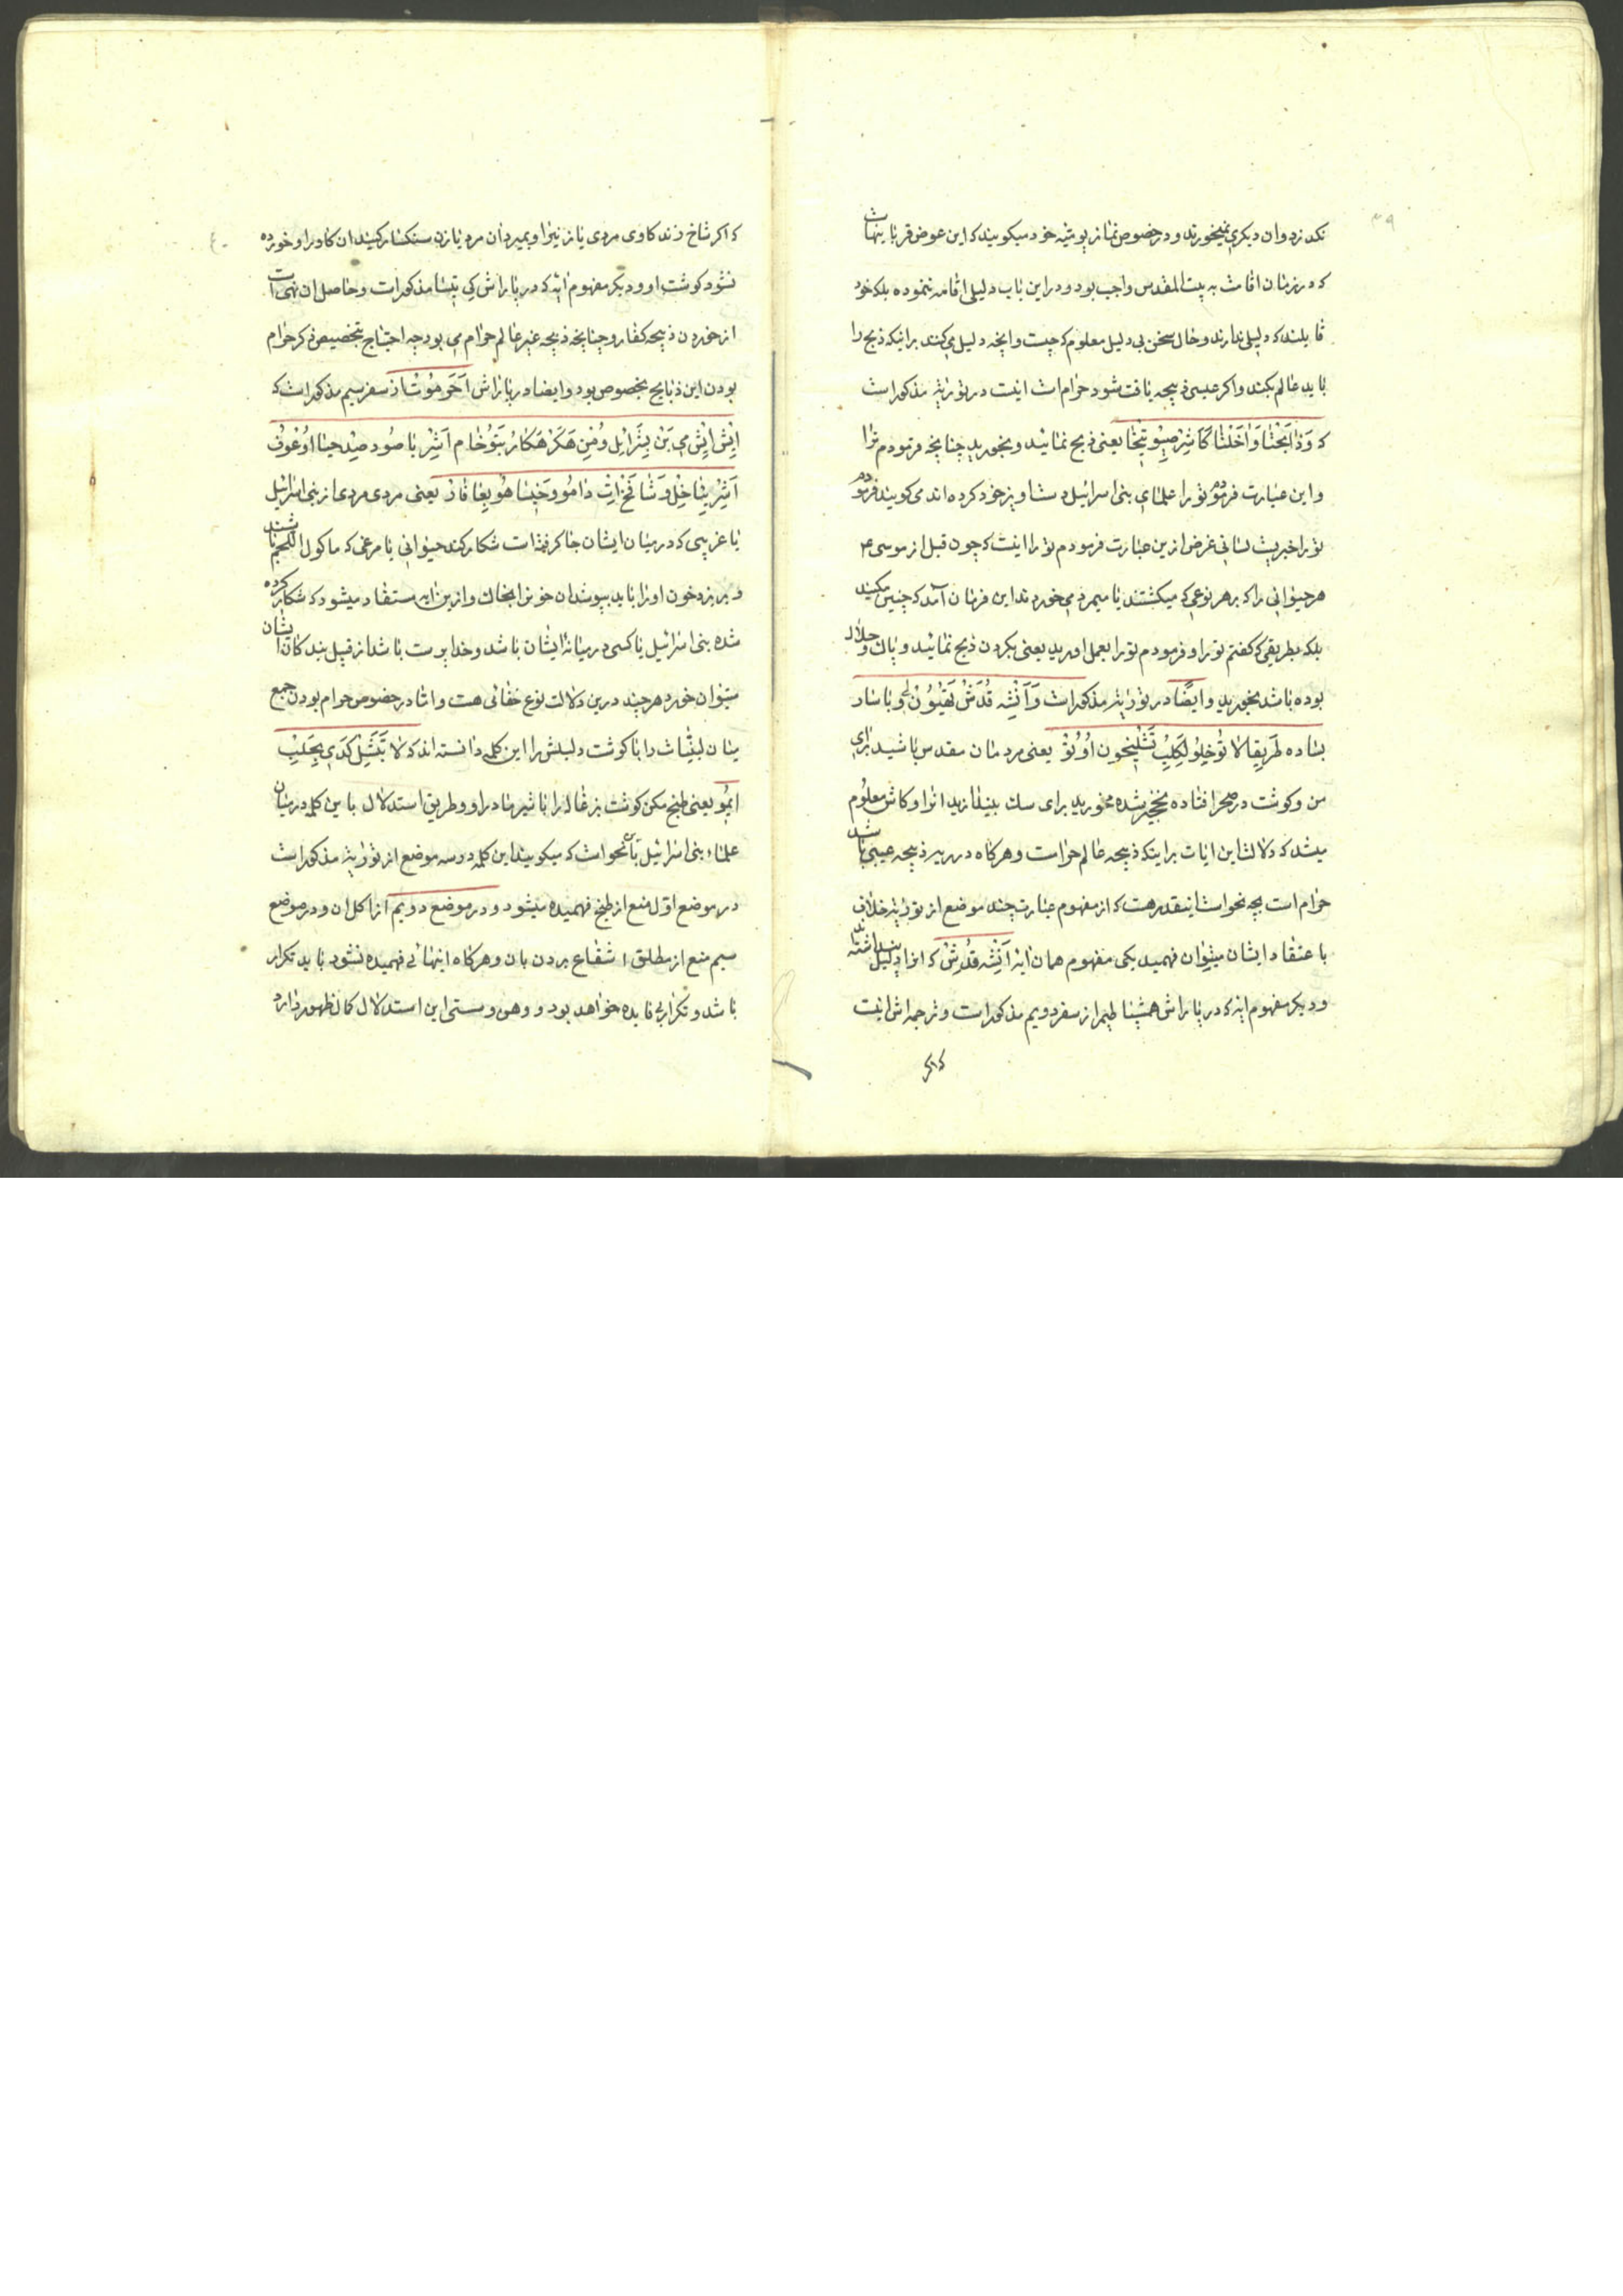 ۳۹
نکند زد و ان دیکری نمیخورند و در خصوص نماز یومیّه خود میکویند که این عوض قربانیهاست
که در زمان اقامت به بیت المقدس واجب بود و در این باب دلیلی اقامه ننموده بلکه خود
قایلند که دلیلی ندارند و حال سخن بی دلیل معلوم که چیست و انچه دلیل می کنند بر اینکه ذبح را
باید عالم بکند و اکر عیسی ذبیحه یافت شود حرام است اینست در توریة مذکور است
که وَذابَحْتٰا وَاٰخَلْتٰا کَاَشِرْ صِیوِیتیخٰا یعنی ذبح نمائید و بخورید چنانچه فرمودم ترا
و این عبارت فرمودم تو را علمای بنی اسرائیل دستاویز خود کرده اند می کویند فرمودم
تو را خبریست لسانی غرض ازین عبارت فرمودم تو را اینست که چون قبل از موسی ع
هر حیوانی را که بر هر نوعی که میکشتند یا میمرد می خوردند این فرمان آمد که چنین مکنید
بلکه بطریقی که کفتم تو را و فرمودم تو را بعمل اورید یعنی بکردن ذبح نمائید و پاك و حلال
بوده باشد بخورید و ایضًا در توریة مذکور است وَاَنْشِه قُدَشْ تَهْیُوُنْ لِی وُباسٰار
بَسٰاده طَرِیفا لاٰ تُوْخِلُوْ لَکِلِبْ تَشْلِیخون اُوُتُوْ یعنی مردمان مقدس باشید برای
من و کوشت در صحرا افتاده نخجیر شده مخورید برای سك بیندازید انرا و کاش معلوم
میشد که دلالت این ایات بر اینکه ذبیحه عالم حراست و هرکاه در ریه ذبیحه عیبی باشد
حرام است بچه نحو است اینقدر هست که از مفهوم عبارت چند موضع از توریة خلاف
با عتقاد ایشان میتوان فهمید یکی مفهوم همان ایه اَنِشِه قُدُشْ که انرا دلیل پنداشته اند
و دیکر مفهوم ایه که در پاراش همشپاطیم از سفر دویم مذکور است و ترجمه اش اینست
که اکر
٤٠
که اکر شاخ زند کاوی مردی یا زنی را و بمیرد ان مرد یا زن سنکسار کنید ان کاو را و خورده
نشود کوشت او و دیکر مفهوم ایه که در پاراش کی تیسا مذکور است و حاصل ان نهی است
از خوردن ذبیحه کفار و چنانچه ذبیحه غیر عالم حرام می بود چه احتیاج بتخصیص ذکر حرام
بودن این ذبایح بخصوص بود و ایضا در پاراش اَخَرِهوُتْ از سفر سیم مذکور است که
اِیْش اِیْشْ مِی بَنْ یِسْرَائِل وُمْنِ هَکَرْ هَکٰارُ بَتوُخٰام اَشِرْ یاصُود صِیْد حَیٰا اوُعُوفْ
اَشِرْ یِیٰاخِلْ وَشٰافَخْ اِتْ دٰامُوُ وَخِیسٰا هُوُ بِعٰافٰارْ یعنی مردی مردی از بنی اسرائیل
یا غریبی که در میان ایشان جا کرفته است شکار کند حیوانی یا مرغی که ماکول اللحم باشند
و بریزد خون او را باید بپوشد ان خون را بخاك و ازین ایه مستفاد میشود که شکار کرده
شده بنی اسرائیل یا کسی در میانه ایشان باشد و خدا پرست باشد از قبیل بندکان ایشان
میتوان خورد هر چند درین دلالت نوع خفائی هست و اما در خصوص حرام بودن جمع
میان لبنیّات را با کوشت دلیلش را این کلمه دانسته اند که لاٰ تَبَشِّلْ کَدِی بِحَلِیْبِ
اِیمُوُ یعنی طبخ مکن کوشت بزغاله را با شیر مادر او و طریق استدلال باین کلمه در میان
علماء بنی اسرائیل بآن نحو است که میکویند این کلمه در سه موضع از توریة مذکور است
در موضع اوّل منع از طبخ فهمیده میشود و در موضع دویم از اکل ان و در موضع
سیم منع از مطلق انتفاع بردن بان و هرکاه اینهائی فهمیده نشود باید تکرار
باشد و تکرار بی فایده خواهد بود و وهن و سستی این استدلال کمال ظهور دارد